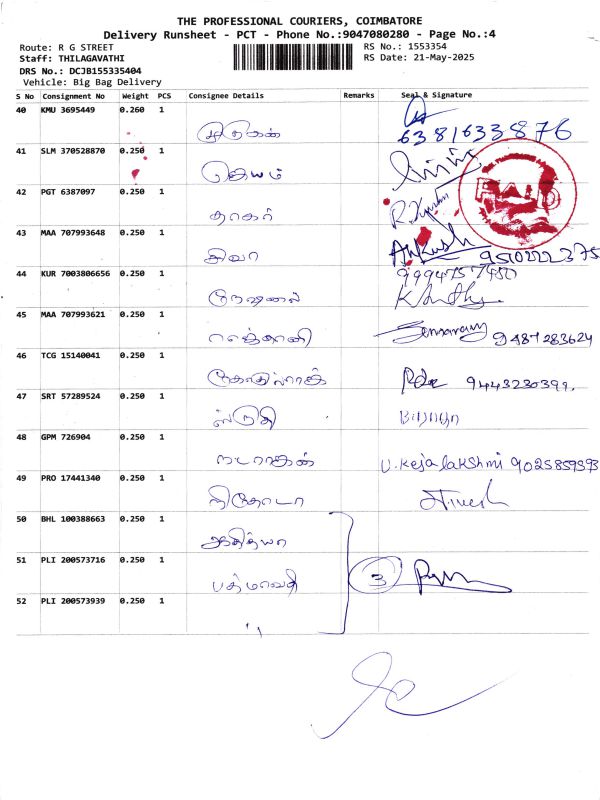 THE PROFESSIONAL COURIERS, COIMBATORE
Delivery Runsheet - PCT - Phone No.:9047080280 - Page No.:4
Route: R G STREET
RS No.: 1553354
Staff: THILAGAVATHI
RS Date: 21-May-2025
DRS No.: DCJB155335404
Vehicle: Big Bag Delivery
S No Consignment No Weight PCS Consignee Details Remarks Seal & Signature
40 KMU 3695449 0.260 1 முருகன் 6381633876
41 SLM 370528870 0.250 1 ஜெயம்
42 PGT 6387097 0.250 1 தாகர்
PAID
43 MAA 707993648 0.250 1 சிவா Ankush
44 KUR 7003806656 0.250 1
45 MAA 707993621 0.250 1 9487283624
46 TCG 15140041 0.250 1 9443230399
47 SRT 57289524 0.250 1 ஸ்ருதி
48 GPM 726904 0.250 1 நடராகன் V. Kejalakshmi 9025859593
49 PRO 17441340 0.250 1
50 BHL 100388663 0.250 1 ஆதித்யா
51 PLI 200573716 0.250 1 பத்மாவதி 3
52 PLI 200573939 0.250 1 "